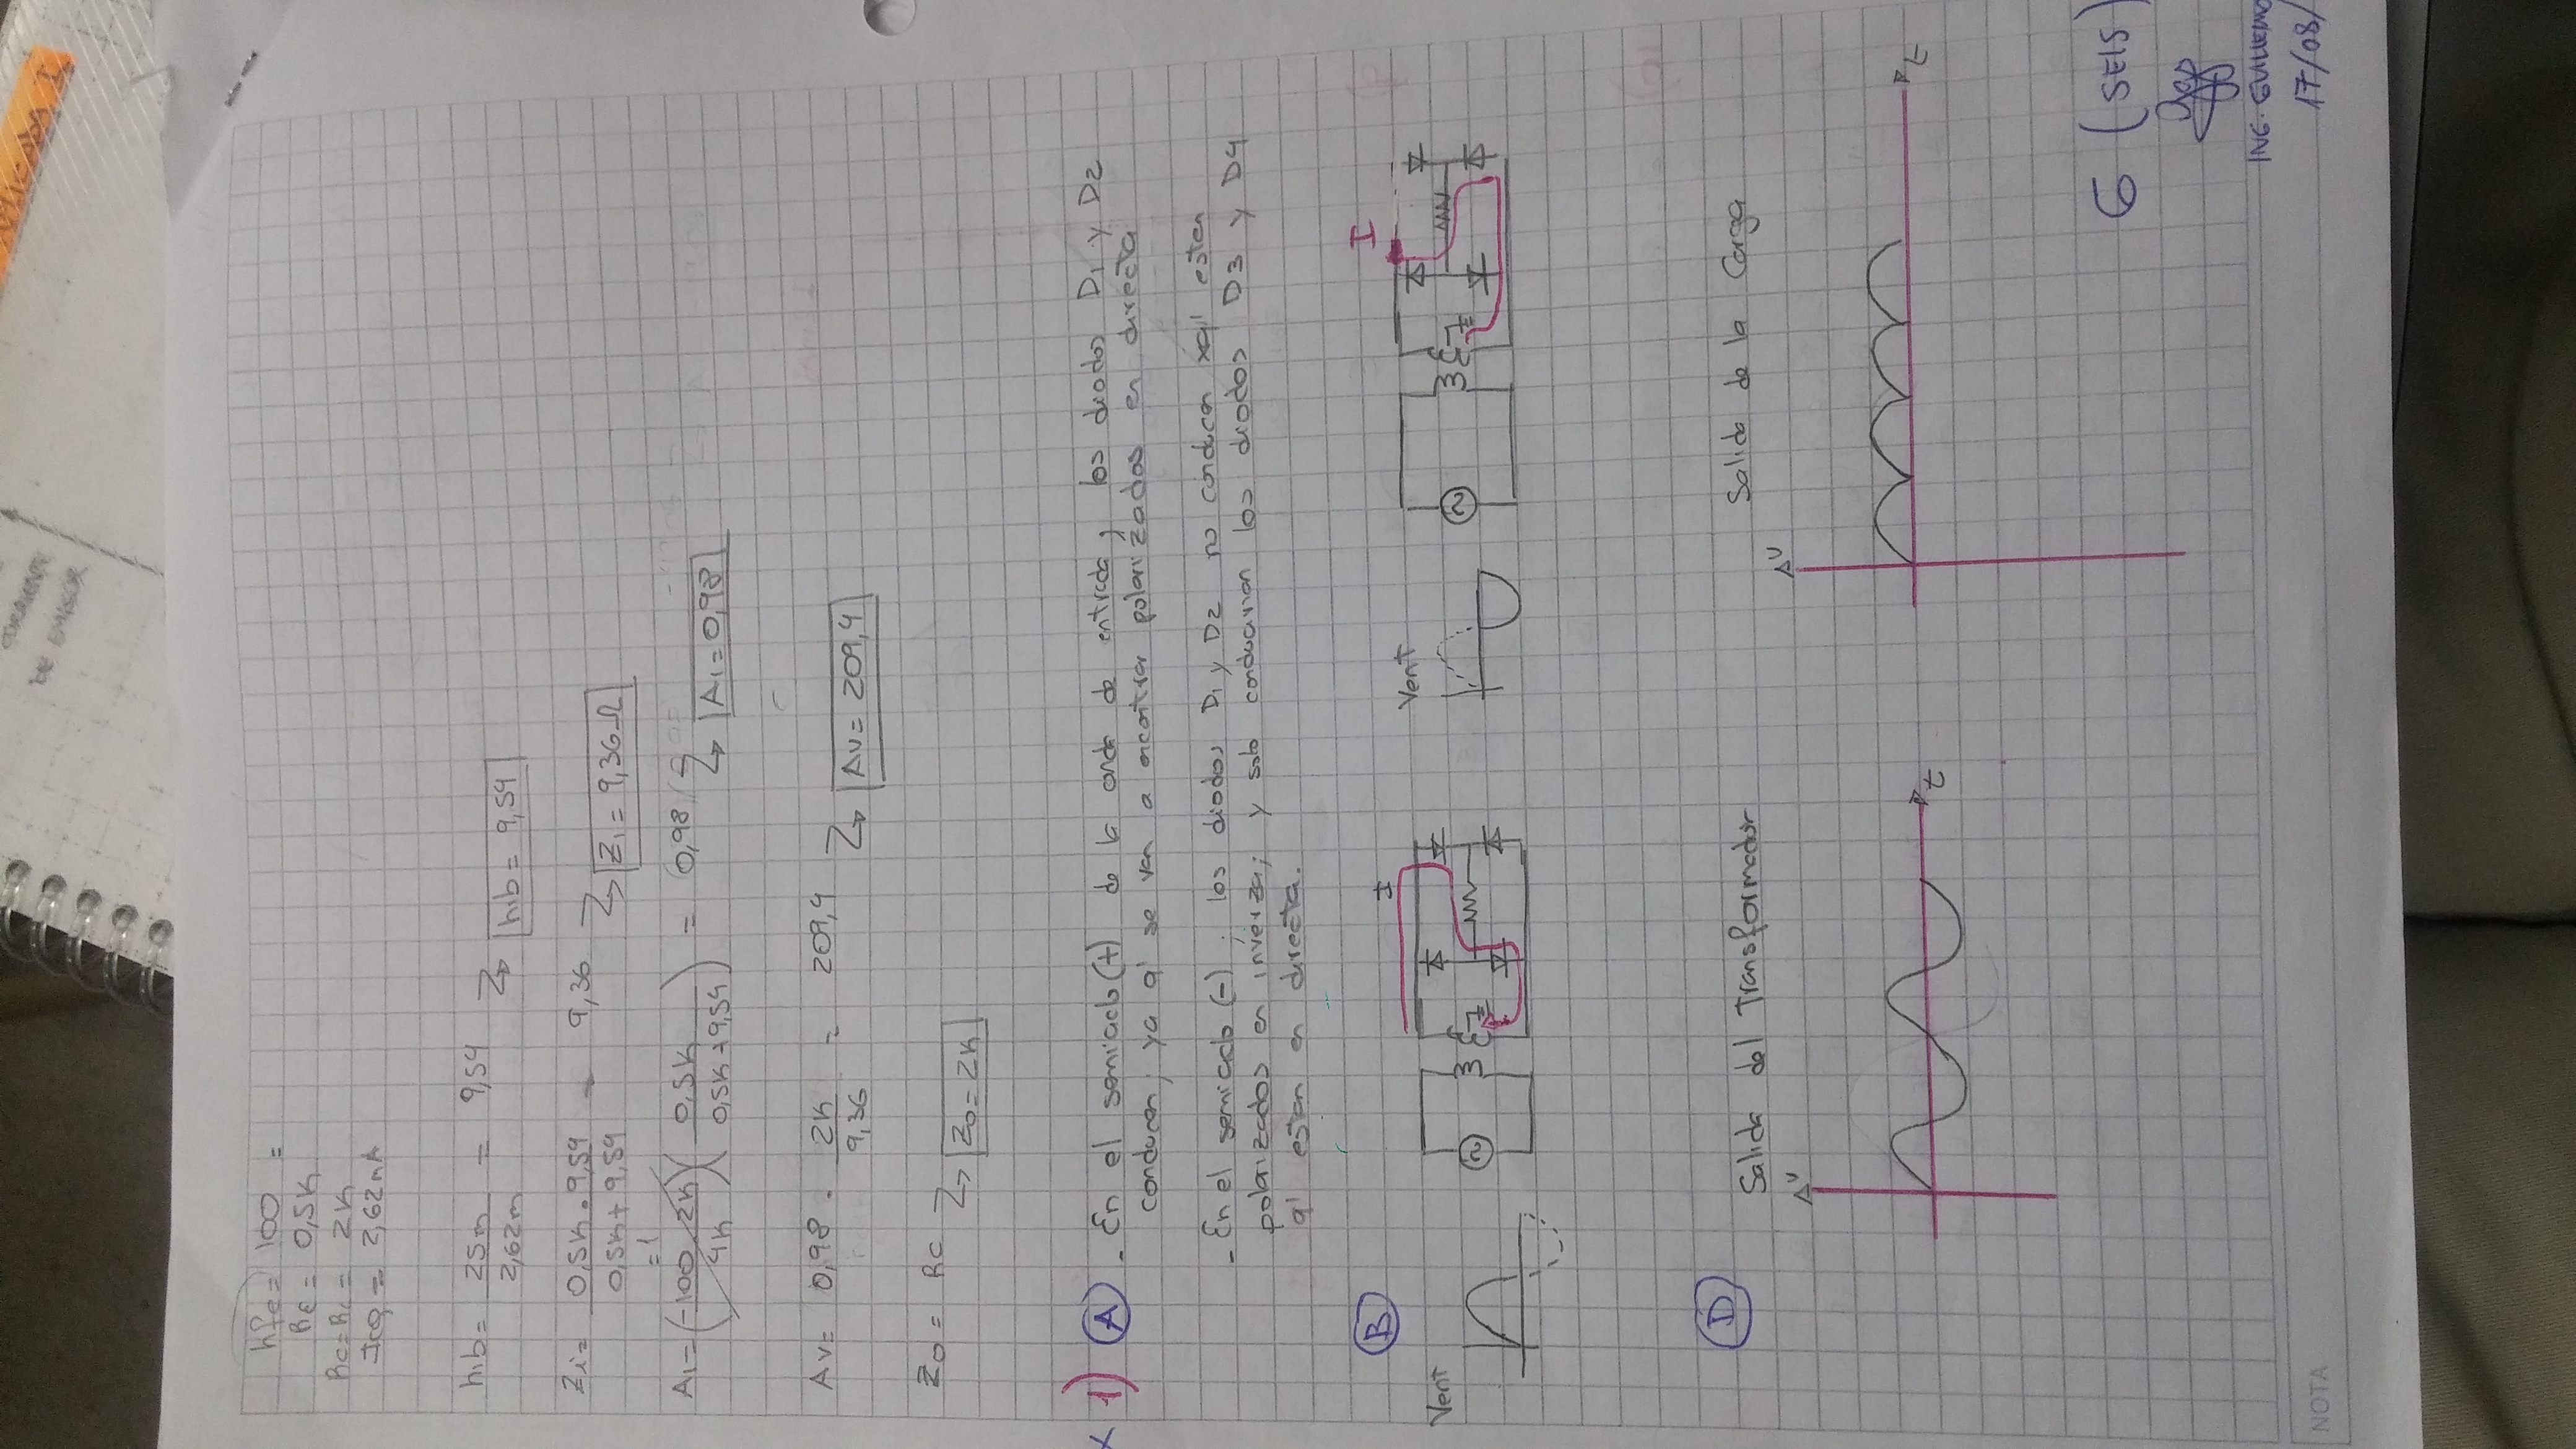 CORRIENTE
DE EMISOR
hfe = 100 =
RE = 0,5K
RC=RL = 2K
ICQ = 2,62mA
hib = 25m / 2,62m = 9,54 → hib = 9,54
Zi = 0,5K . 9,54 / 0,5K + 9,54 = 9,36 → Zi = 9,36 Ω
=1
Ai = (-100 2K / 4K)(0,5K / 0,5K + 9,54) = 0,98 → Ai = 0,98
Av = 0,98 . 2K / 9,36 = 209,4 → Av = 209,4
Zo = RC → Zo = 2K
x 1) A - En el semiciclo (+) de la onda de entrada, los diodos D1 y D2
conducen; ya q' se van a encontrar polarizados en directa
- En el semiciclo (-), los diodos D1 y D2 no conducen xq' estan
polarizados en inverza; y solo conducirian los diodos D3 y D4
q' estan en directa.
B
Vent I Vent I
D
Salida del Transformador Salida de la Carga
V V
t t
6 (SEIS)
ING. GUILLERMO
17/08/
NOTA